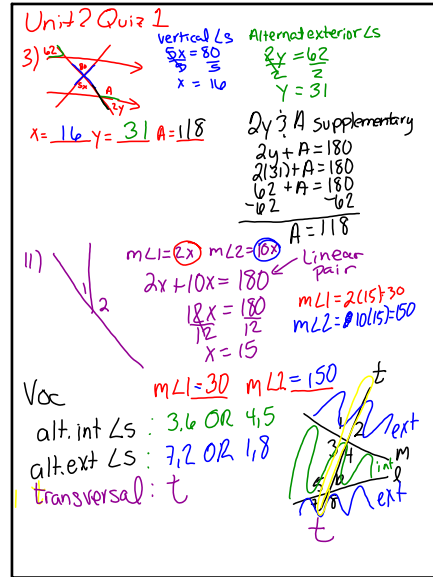 Unit 2 Quiz 1
3)
62
80
5x
A
2y
vertical ∠s
5x = 80
5 5
x = 16
Alternate exterior ∠s
2y = 62
2 2
y = 31
x = 16 y = 31 A = 118
2y & A supplementary
2y + A = 180
2(31) + A = 180
62 + A = 180
-62 -62
A = 118
11)
1
2
m∠1 = 2x m∠2 = 10x
2x + 10x = 180
Linear
pair
12x = 180
12 12
x = 15
m∠1 = 2(15) = 30
m∠2 = 10(15) = 150
m∠1 = 30 m∠2 = 150
Voc
alt. int ∠s : 3,6 OR 4,5
alt. ext ∠s : 7,2 OR 1,8
transversal : t
t
1 2
ext
3 4
m
int
5 6
l
7 8
ext
t